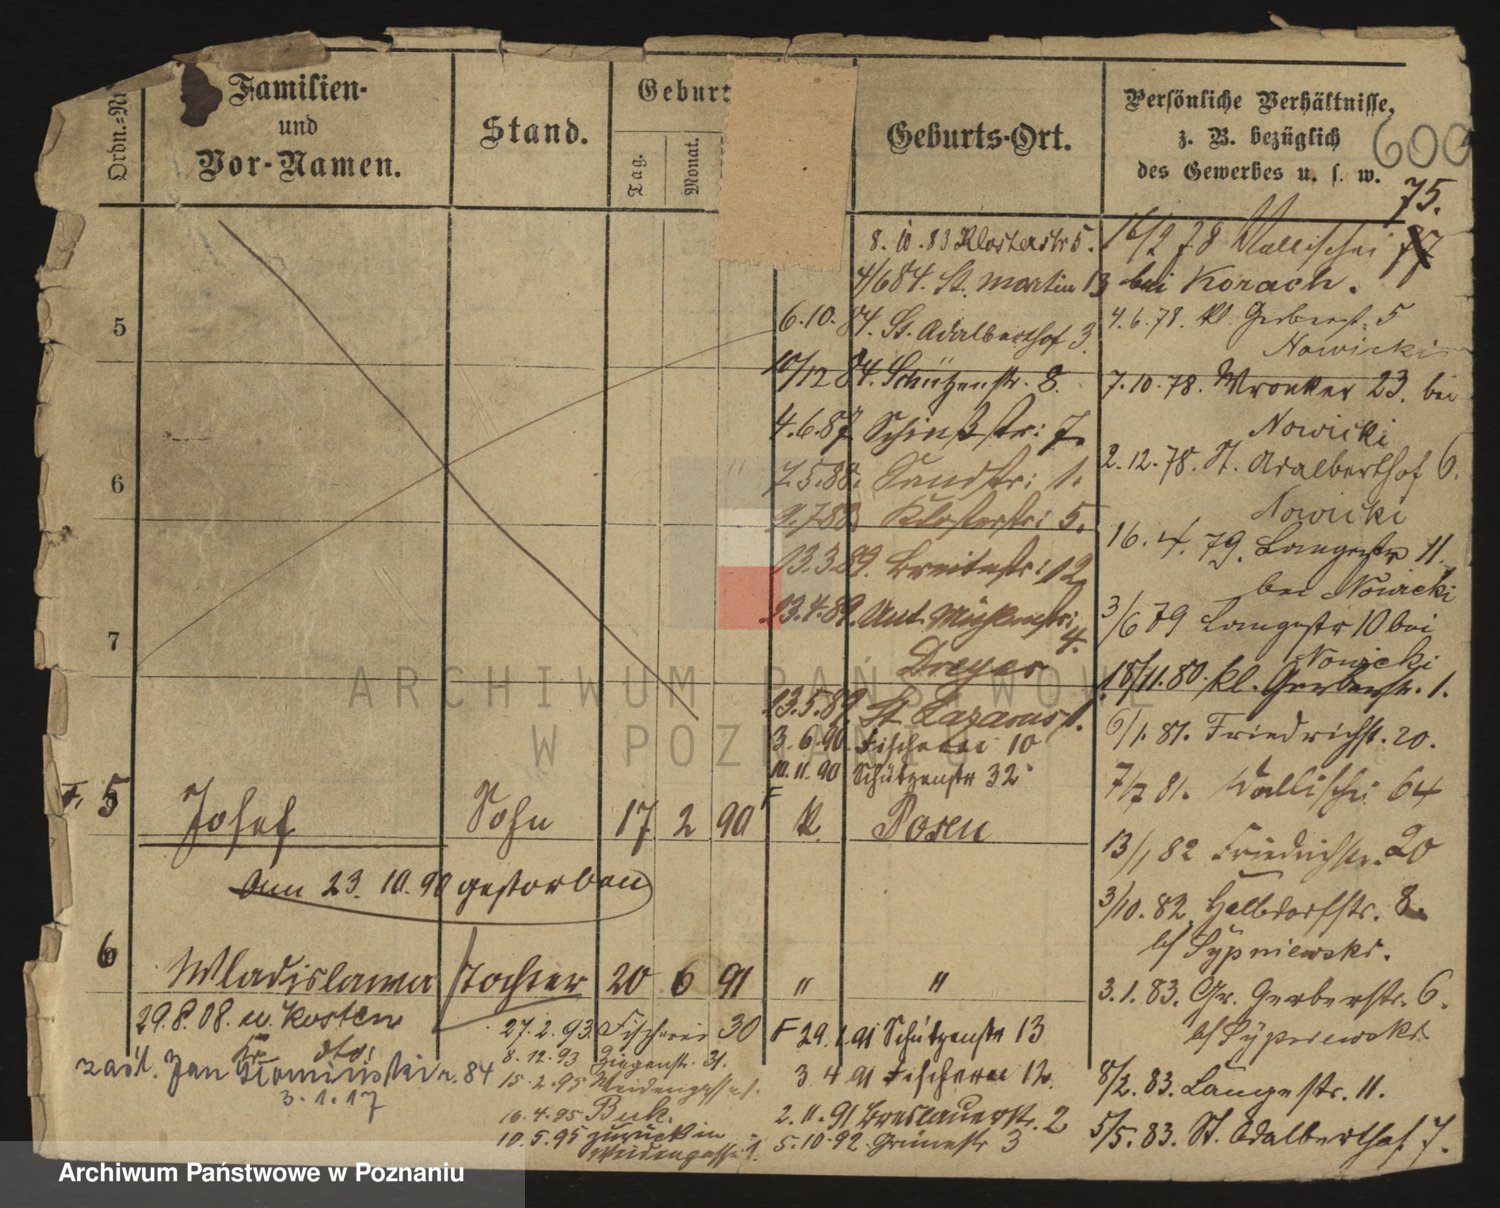 Ordn.=Nr
Familien-
und
Vor-Namen.
Stand.
Geburt
Tag.
Monat.
Geburts-Ort.
Persönliche Verhältnisse,
z. B. bezüglich
des Gewerbes u. s. w.
600
75.
8. 10. 83 Klosterstr 5.
4/6 84. St. Martin 13
6. 10. 84. St. Adalberthof 3.
10/12 84. Schützenstr. 8.
4. 6. 87. 7.
7. 5. 88. Sandstr: 1.
88. Klosterstr: 5.
13. 3. 89. Breitestr: 12
23. 4. 89. Unt. Mühlenstr:
4.
Dreyer
13. 5. 89. St Lazarus 1.
3. 6. 90. Fischerei 10
10. 11. 90 Schützenstr 32
16/2 78 Wallischei 77
bei Korach.
4. 6. 78. Kl Gerberst. 5
Nowicki
7. 10. 78. Wronker 23. bei
Nowicki
2. 12. 78. St. Adalberthof 6.
Nowicki
16. 4. 79. Langestr 11.
bei Nowicki
3/6 79 Langestr 10 bei
Nowicki
18/11. 80. Kl. Gerberstr. 1.
6/1. 81. Friedrichst. 20.
7/7 81. Wallischei 64
13/1 82 Friedrichstr. 20
3/10. 82 Halbdorfstr. 8.
b/ Sypniewski.
3. 1. 83. Gr. Gerberstr. 6.
b/ Sypniewski.
8/2. 83. Langestr. 11.
5/5. 83. St. Adalberthof 7.
5
6
7
F. 5 Josef Sohn 17 2 90 K. Posen
am 23. 10. 90 gestorben
6 Wladislawa Tochter 20 6 91 " "
29. 8. 08. n. Kosten
Jan Kamiński 84
3. 1. 17
27. 2. 93. Fischerei 30
8. 12. 93 Ziegenstr. 21.
15. 2. 95 Weidengasse
16. 4. 95 Buk.
10. 5. 95 zurück in
Weidengasse
F 29. 1. 91 Schützenstr 13
3. 4. 91 Fischerei 12.
2. 11. 91 Breslauerstr. 2
5. 10. 92 Grünestr 3
ARCHIWUM PAŃSTWOWE
W POZNANIU
Archiwum Państwowe w Poznaniu